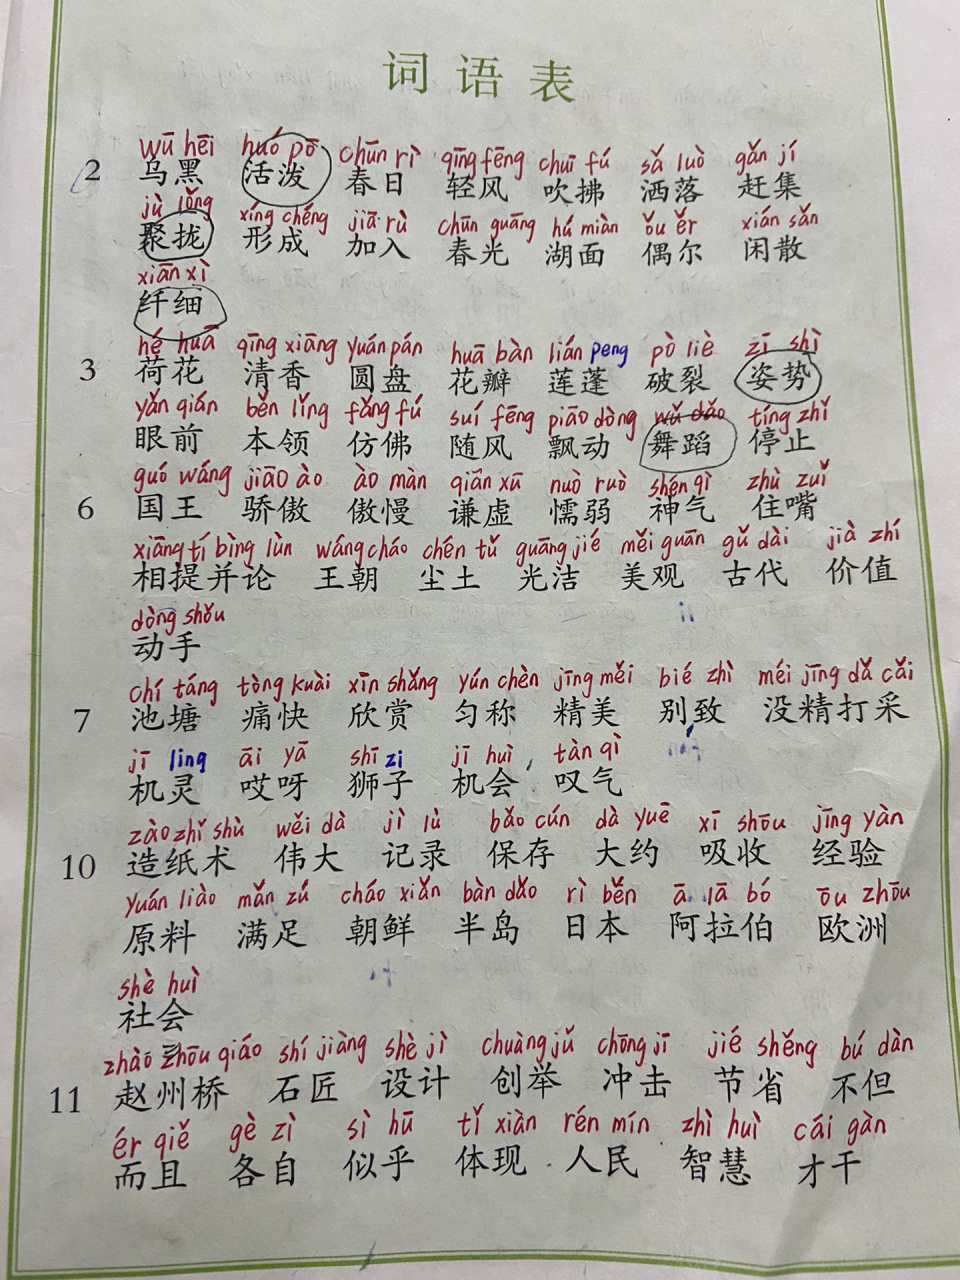 词语表
wū hēi huó pō chūn rì qīng fēng chuī fú sǎ luò gǎn jí
2 乌黑 活泼 春日 轻风 吹拂 洒落 赶集
jù lǒng xíng chéng jiā rù chūn guāng hú miàn ǒu ěr xián sǎn
聚拢 形成 加入 春光 湖面 偶尔 闲散
xiān xì
纤细
hé huā qīng xiāng yuán pán huā bàn lián peng pò liè zī shì
3 荷花 清香 圆盘 花瓣 莲蓬 破裂 姿势
yǎn qián běn lǐng fǎng fú suí fēng piāo dòng wǔ dǎo tíng zhǐ
眼前 本领 仿佛 随风 飘动 舞蹈 停止
guó wáng jiāo ào ào màn qiān xū nuò ruò shén qì zhù zuǐ
6 国王 骄傲 傲慢 谦虚 懦弱 神气 住嘴
xiāng tí bìng lùn wáng cháo chén tǔ guāng jié měi guān gǔ dài jià zhí
相提并论 王朝 尘土 光洁 美观 古代 价值
dòng shǒu
动手
chí táng tòng kuài xīn shǎng yún chèn jīng měi bié zhì méi jīng dǎ cǎi
7 池塘 痛快 欣赏 匀称 精美 别致 没精打采
jī ling āi yā shī zi jī huì tàn qì
机灵 哎呀 狮子 机会 叹气
zào zhǐ shù wěi dà jì lù bǎo cún dà yuē xī shōu jīng yàn
10 造纸术 伟大 记录 保存 大约 吸收 经验
yuán liào mǎn zú cháo xiǎn bàn dǎo rì běn ā lā bó ōu zhōu
原料 满足 朝鲜 半岛 日本 阿拉伯 欧洲
shè huì
社会
zhào zhōu qiáo shí jiàng shè jì chuàng jǔ chōng jī jié shěng bú dàn
11 赵州桥 石匠 设计 创举 冲击 节省 不但
ér qiě gè zì sì hū tǐ xiàn rén mín zhì huì cái gàn
而且 各自 似乎 体现 人民 智慧 才干